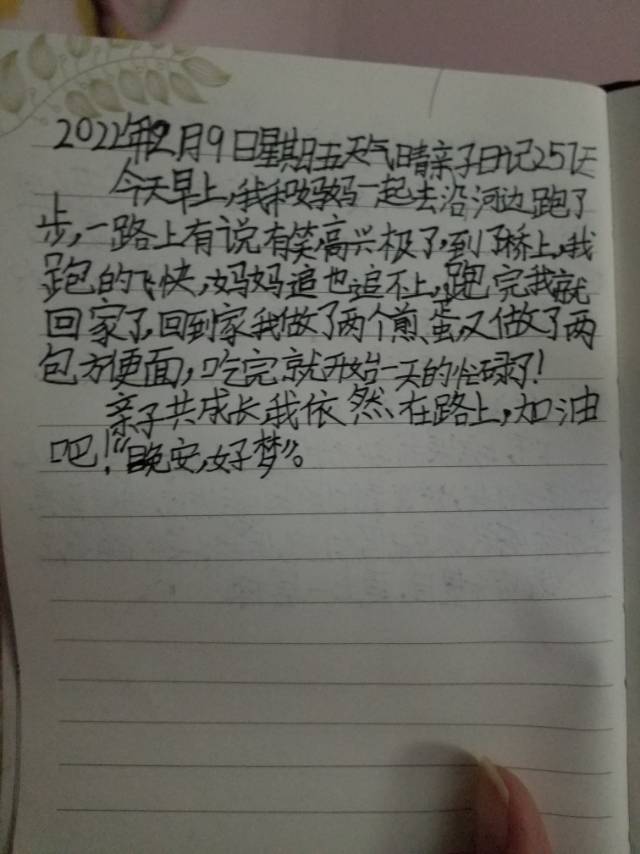 2022年12月9日星期五天气晴亲子日记257天
今天早上,我和妈妈一起去沿河边跑了
步,一路上有说有笑,高兴极了,到了桥上,我
跑的飞快,妈妈追也追不上,跑完我就
回家了,回到家我做了两个煎蛋,又做了两
包方便面,吃完就开始一天的忙碌了!
亲子共成长,我依然在路上,加油
吧!“晚安,好梦”。